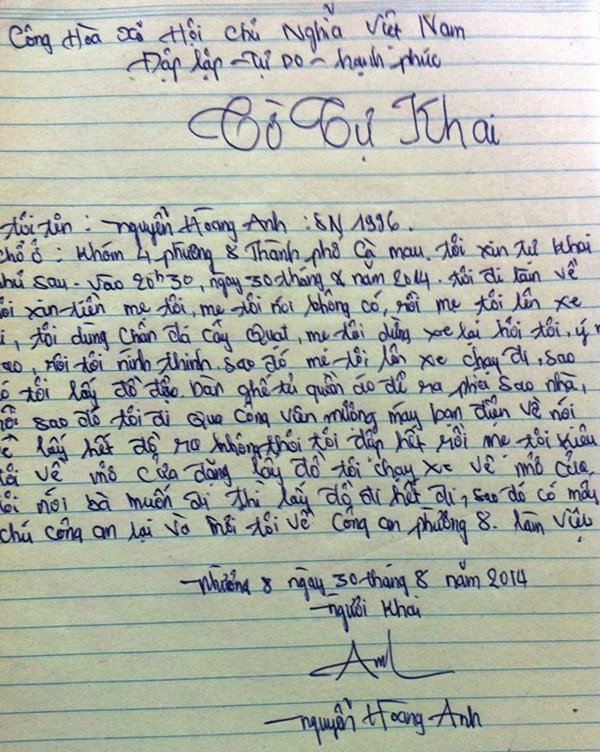 Công Hòa Xã Hội Chủ Nghĩa Việt Nam
Độp lập - Tự Do - hạnh phúc
Tờ Tự Khai
tôi tên : nguyễn Hoàng Anh : SN 1996.
chổ ở : Khóm 4 phường 8 Thành phố Cà mau. tôi xin tự Khai
như sau. vào 20h30, ngày 30 tháng 8 năm 2014. tôi đi làm về
tôi xin tiền mẹ tôi, mẹ tôi nói không có, rồi mẹ tôi lên xe
đi, tôi dùng chân đá cây Quạt, mẹ tôi dừng xe lại hỏi tôi, ý
sao, rồi tôi nính thinh. sao đó mẹ tôi lên xe chạy đi, sao
đó tôi lấy đồ đạo. bàn ghế tủ quần áo để ra phía sao nhà,
rồi sao đó tôi đi qua công vân mường máy ban điện về nói
lấy hết đồ ra không thôi tôi đần hết rồi mẹ tôi kiêu
tôi về mở cửa đàng lấy đồ tôi chạy xe về mở cửa,
tôi nói bà muốn đi thì lấy đồ đi hết đi, sao đó có mấy
chú công an lại và mời tôi về công an phường 8. làm việc
Phường 8 ngày 30 tháng 8 năm 2014
người khai
Anh
nguyễn Hoàng Anh